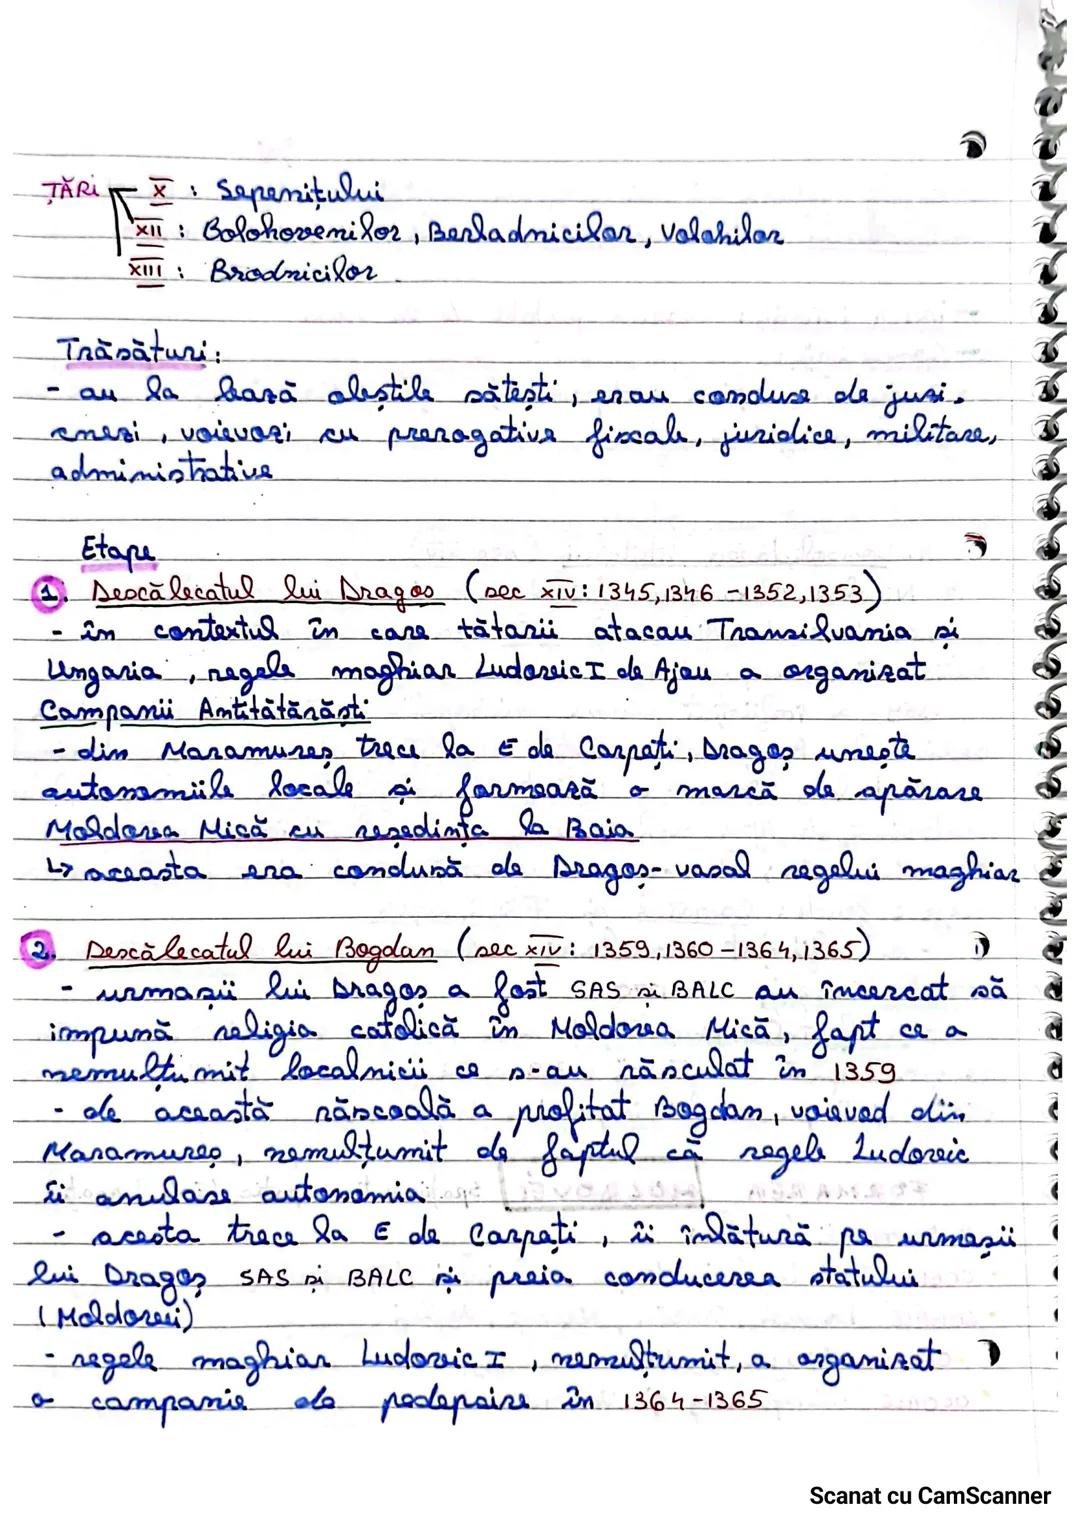 ȚĂRI X : Sepenițului
XII : Bolohovenilor, Berladnicilor, Volohilor
XIII : Brodnicilor
Trăsături:
- au la bază obștile sătești, erau conduse de juzi,
cnezi, voievozi cu prerogative fiscale, juridice, militare,
administrative
Etape
1. Descălecatul lui Dragoș (sec XIV: 1345, 1346 - 1352, 1353)
- în contextul în care tătarii atacau Transilvania și
Ungaria, regele maghiar Ludovic I de Ajou a organizat
Campanii Antitătărăști
- din Maramureș trece la E de Carpați, Dragoș unește
autonomiile locale și formează o marcă de apărare
Moldova Mică cu reședința la Baia
↳ aceasta era condusă de Dragoș - vasal regelui maghiar
2. Descălecatul lui Bogdan (sec XIV: 1359, 1360 - 1364, 1365)
- urmașii lui Dragoș a fost SAS și BALC au încercat să
impună religia catolică în Moldova Mică, fapt ce a
nemulțumit localnicii ce s-au răsculat în 1359
- de această răscoală a profitat Bogdan, voievod din
Maramureș, nemulțumit de faptul că regele Ludovic
îi anulase autonomia
- acesta trece la E de Carpați, îi înlătură pe urmașii
lui Dragoș SAS și BALC și preia conducerea statului
(Moldovei)
- regele maghiar Ludovic I, nemulțumit, a organizat
o campanie de pedepsire în 1364-1365
Scanat cu CamScanner